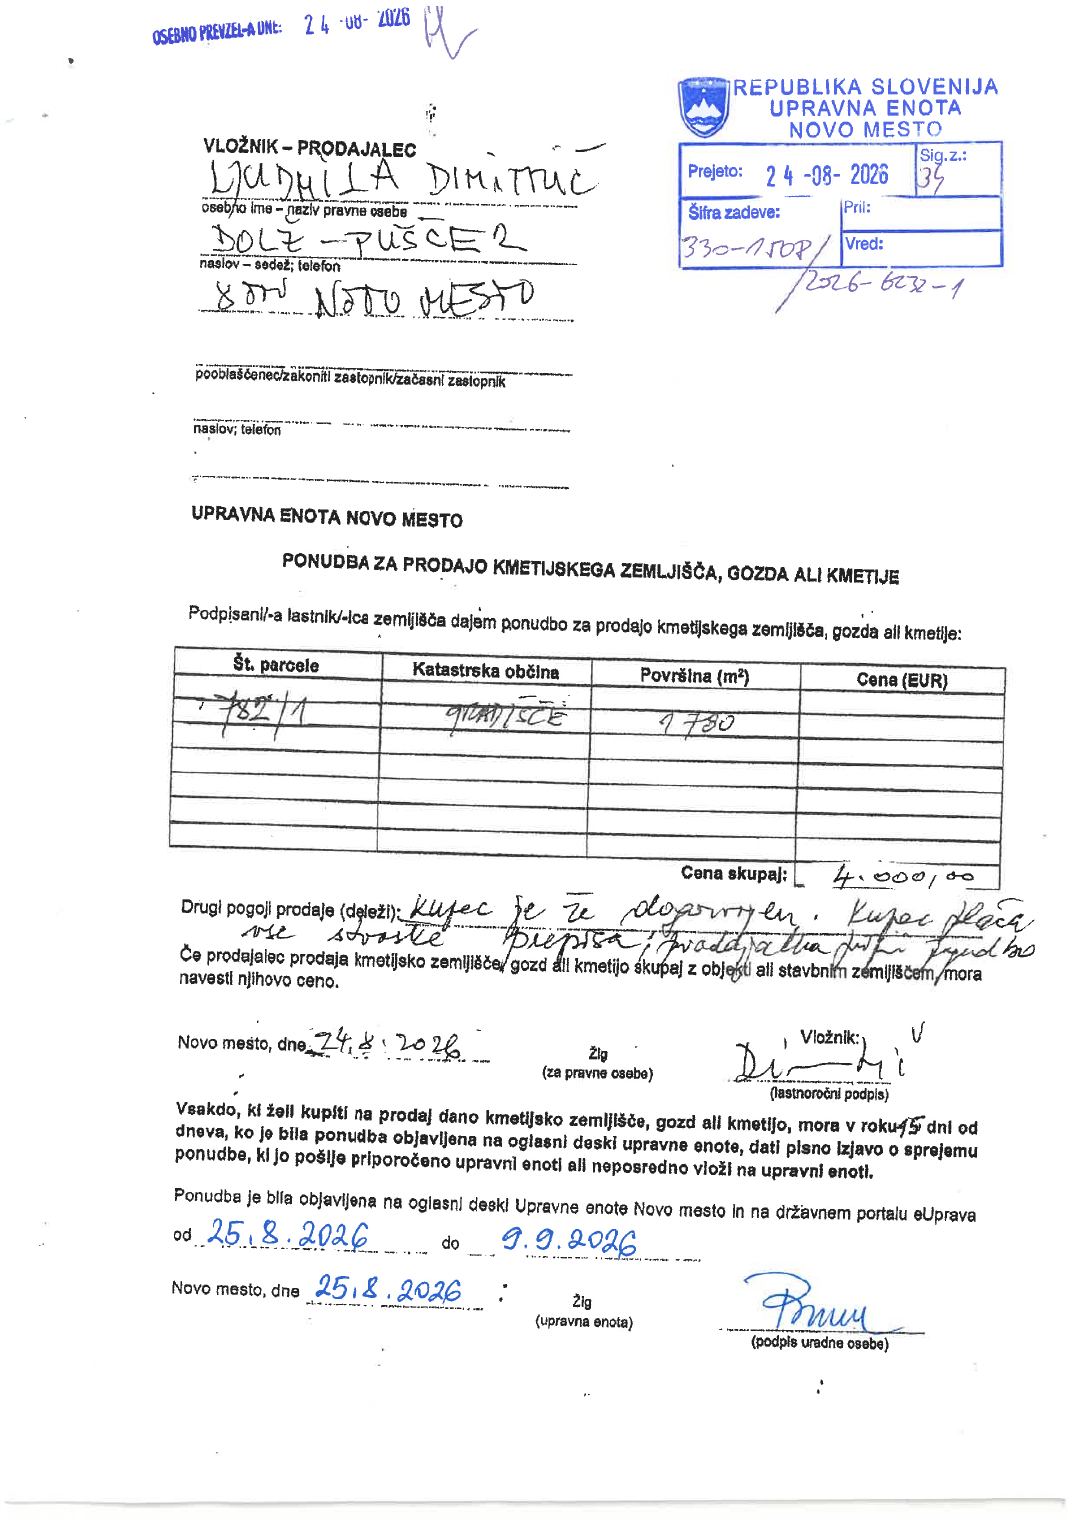 OSEBNO PREVZEL-A DNE: 24 -08- 2026
REPUBLIKA SLOVENIJA
UPRAVNA ENOTA
NOVO MESTO
Prejeto: 24 -08- 2026
Sig.z.: 34
Šifra zadeve:
330-1508/
Pril:
Vred:
/2026-6232-1
VLOŽNIK – PRODAJALEC
LJUDMILA DIMITRIČ
osebno ime – naziv pravne osebe
DOLŽ – PUŠČE 2
naslov – sedež; telefon
NOVO MESTO
pooblaščenec/zakoniti zastopnik/začasni zastopnik
naslov; telefon
UPRAVNA ENOTA NOVO MESTO
PONUDBA ZA PRODAJO KMETIJSKEGA ZEMLJIŠČA, GOZDA ALI KMETIJE
Podpisani/-a lastnik/-ica zemljišča dajem ponudbo za prodajo kmetijskega zemljišča, gozda ali kmetije:
Št. parcele Katastrska občina Površina (m²) Cena (EUR)
782/1 GRADIŠČE 1780
Cena skupaj: 4.000,00
Drugi pogoji prodaje (deleži): Kupec je že dogovorjen. Kupec plača
vse stroške prepisa, prodajalka
Če prodajalec prodaja kmetijsko zemljišče, gozd ali kmetijo skupaj z objekti ali stavbnim zemljiščem, mora
navesti njihovo ceno.
Novo mesto, dne 24.8.2026
Žig
(za pravne osebe)
Vložnik:
(lastnoročni podpis)
Vsakdo, ki želi kupiti na prodaj dano kmetijsko zemljišče, gozd ali kmetijo, mora v roku 15 dni od
dneva, ko je bila ponudba objavljena na oglasni deski upravne enote, dati pisno izjavo o sprejemu
ponudbe, ki jo pošlje priporočeno upravni enoti ali neposredno vloži na upravni enoti.
Ponudba je bila objavljena na oglasni deski Upravne enote Novo mesto in na državnem portalu eUprava
od 25.8.2026 do 9.9.2026
Novo mesto, dne 25.8.2026
Žig
(upravna enota)
(podpis uradne osebe)